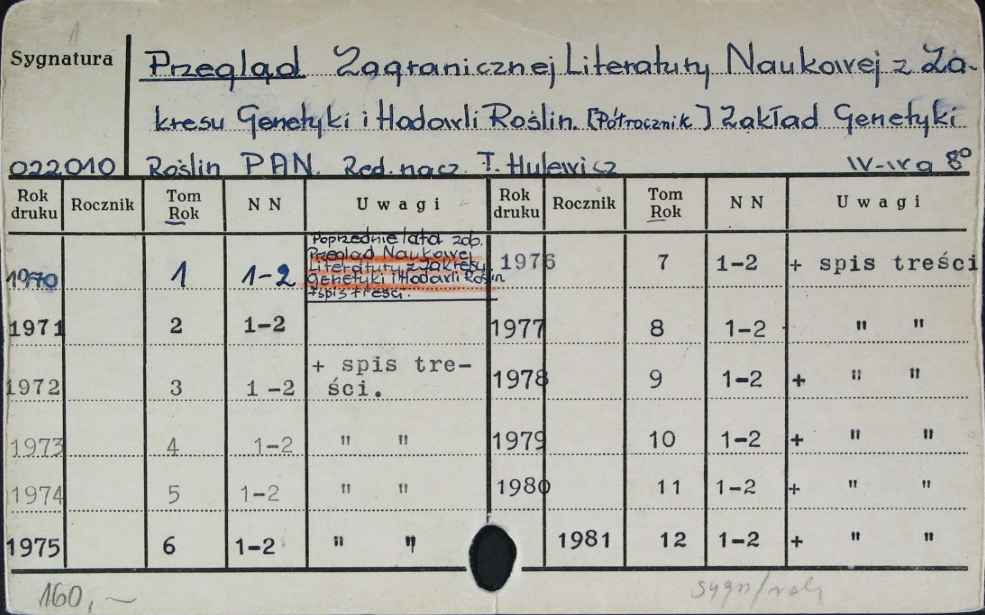 Sygnatura
Przegląd Zagranicznej Literatury Naukowej z Za-
kresu Genetyki i Hodowli Roślin. [Półrocznik] Zakład Genetyki
022010 Roślin PAN. Red. nacz. T. Hulewicz 8°
Rok druku Rocznik Tom Rok NN Uwagi Rok druku Rocznik Tom Rok NN Uwagi
1970 1 1-2 Poprzednie lata zob.
Przegląd Naukowej
Literatury z Zakresu
Genetyki i Hodowli Roślin
+ spis treści.
1976 7 1-2 + spis treści
1971 2 1-2 1977 8 1-2 " "
1972 3 1-2 + spis tre-
ści.
1978 9 1-2 + " "
1973 4 1-2 " " 1979 10 1-2 + " "
1974 5 1-2 " " 1980 11 1-2 + " "
1975 6 1-2 " " 1981 12 1-2 + " "
160,-